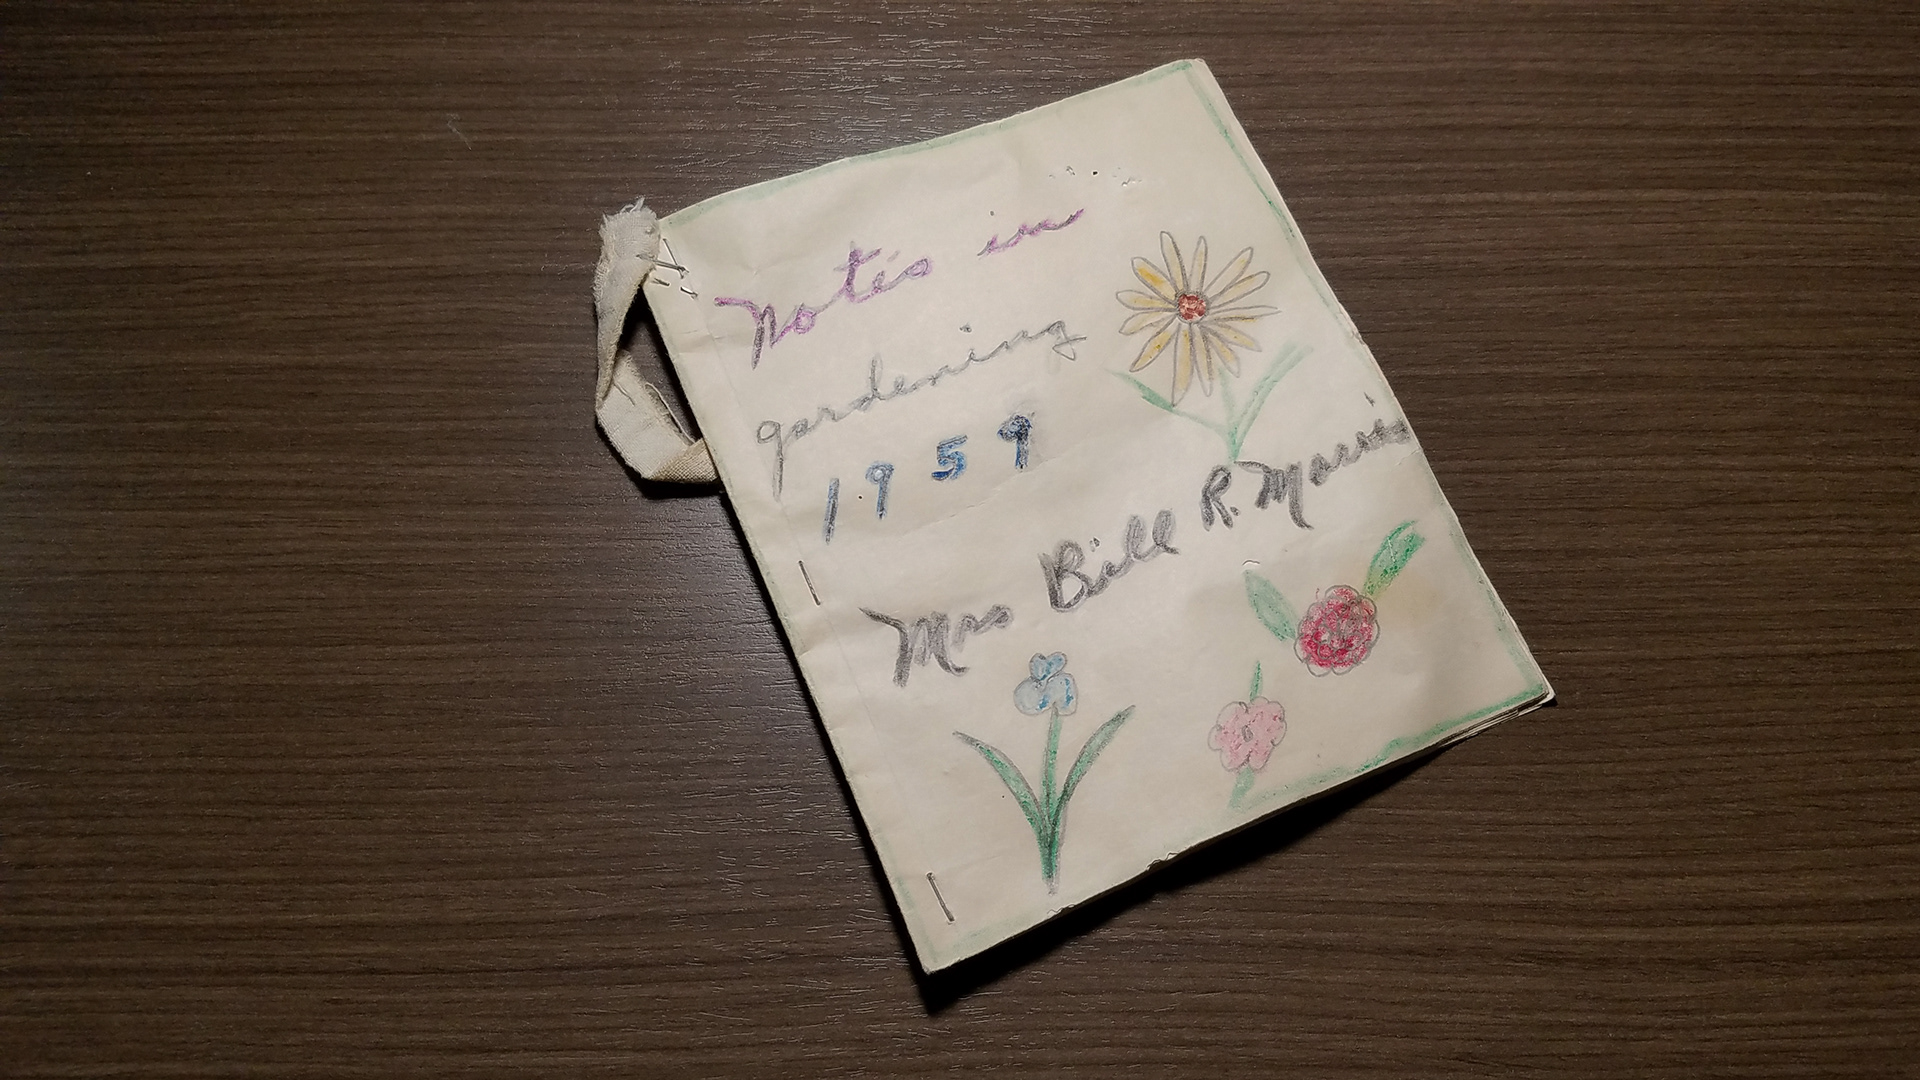 Notes in
gardening
1959
Mrs Bill R. Morris